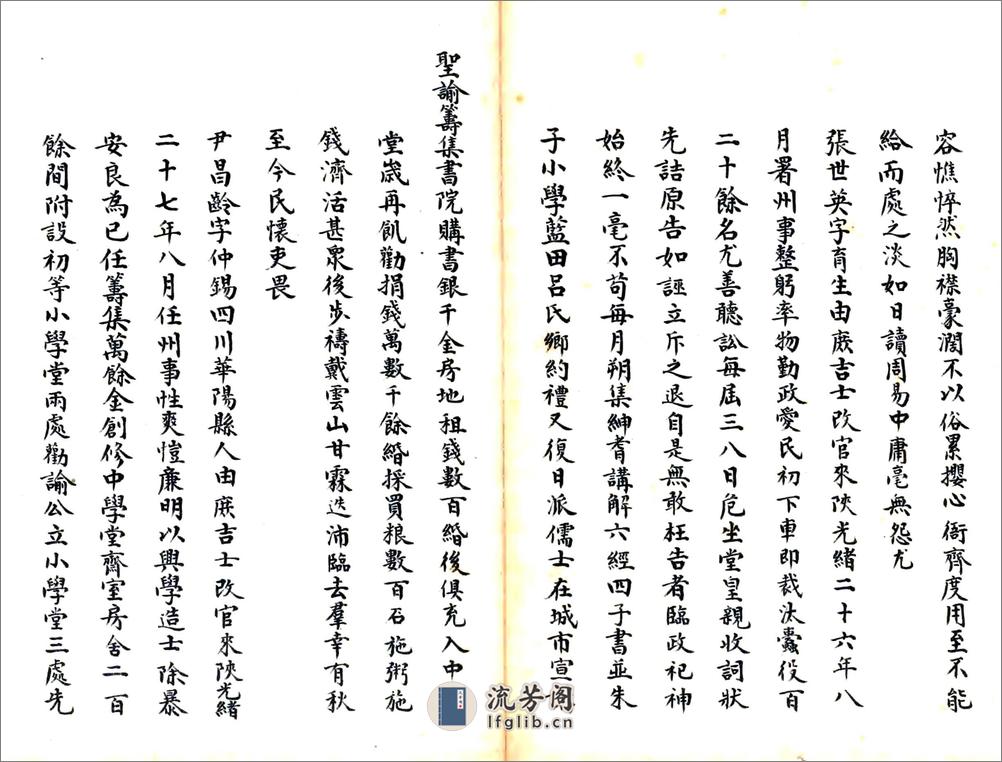 容憔悴然胸襟豪濶不以俗累攖心衙齊度用至不能
給而處之淡如日讀周易中庸毫無怨尤
張世英字育生由庶吉士改官來陝光緒二十六年八
月署州事整躬率物勤政愛民初下車即裁汰蠹役百
二十餘名尤善聽訟每屆三八日危坐堂皇親收詞狀
先詰原告如誣立斥之退自是無敢枉告者臨政祀神
始終一毫不苟每月朔集紳耆講解六經四子書並朱
子小學藍田呂氏鄉約禮又復日派儒士在城市宣
聖諭籌集書院購書銀千金房地租錢數百緡後俱充入中
堂歲再飢勸捐錢萬數千餘緡採買粮數百石施粥施
錢濟活甚衆後步禱戴雲山甘霖迭沛臨去羣幸有秋
至今民懷吏畏
尹昌齡字仲錫四川華陽縣人由庶吉士改官來陝光緒
二十七年八月任州事性爽愷廉明以興學造士除暴
安良為已任籌集萬餘金創修中學堂齊室房舍二百
餘間附設初等小學堂兩處勸諭公立小學堂三處先
流芳阁
lfglib.cn